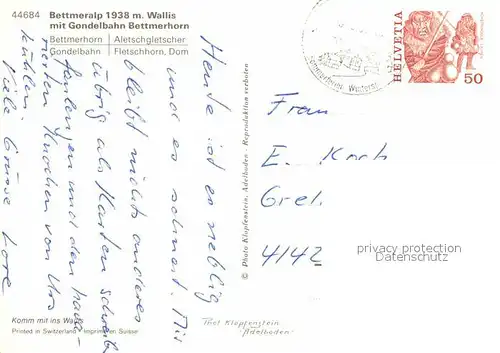 44684
Bettmeralp 1938 m. Wallis
mit Gondelbahn Bettmerhorn
Bettmerhorn Aletschgletscher
Gondelbahn Fletschhorn, Dom
Heute ist es neblig
und es schneit. Mir
bleibt nichts anderes
übrig als Karten schreiben
faulenzen und den
Knochen von Urs
kühlen.
Viele Grüsse Lore
Komm mit ins Wallis
Printed in Switzerland • Imprimé en Suisse
© Photo Klopfenstein, Adelboden - Reproduktion verboten
HELVETIA
50
Frau
E.
Grel.
4142
privacy protection
Datenschutz
Thol Klopfenstein
Adelboden